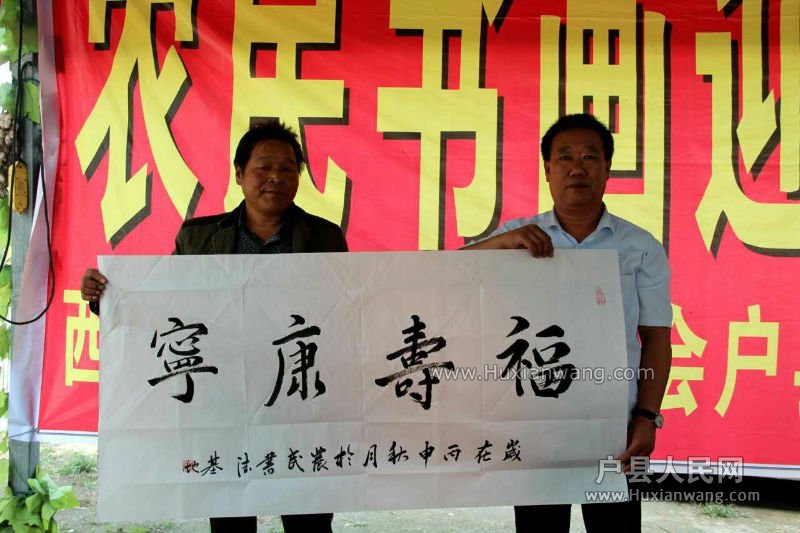 农民书画迎
西
会户
福壽康寧
www.Huxianwang.com
歲在丙申秋月於農民書法基地
户县人民网
www.Huxianwang.com